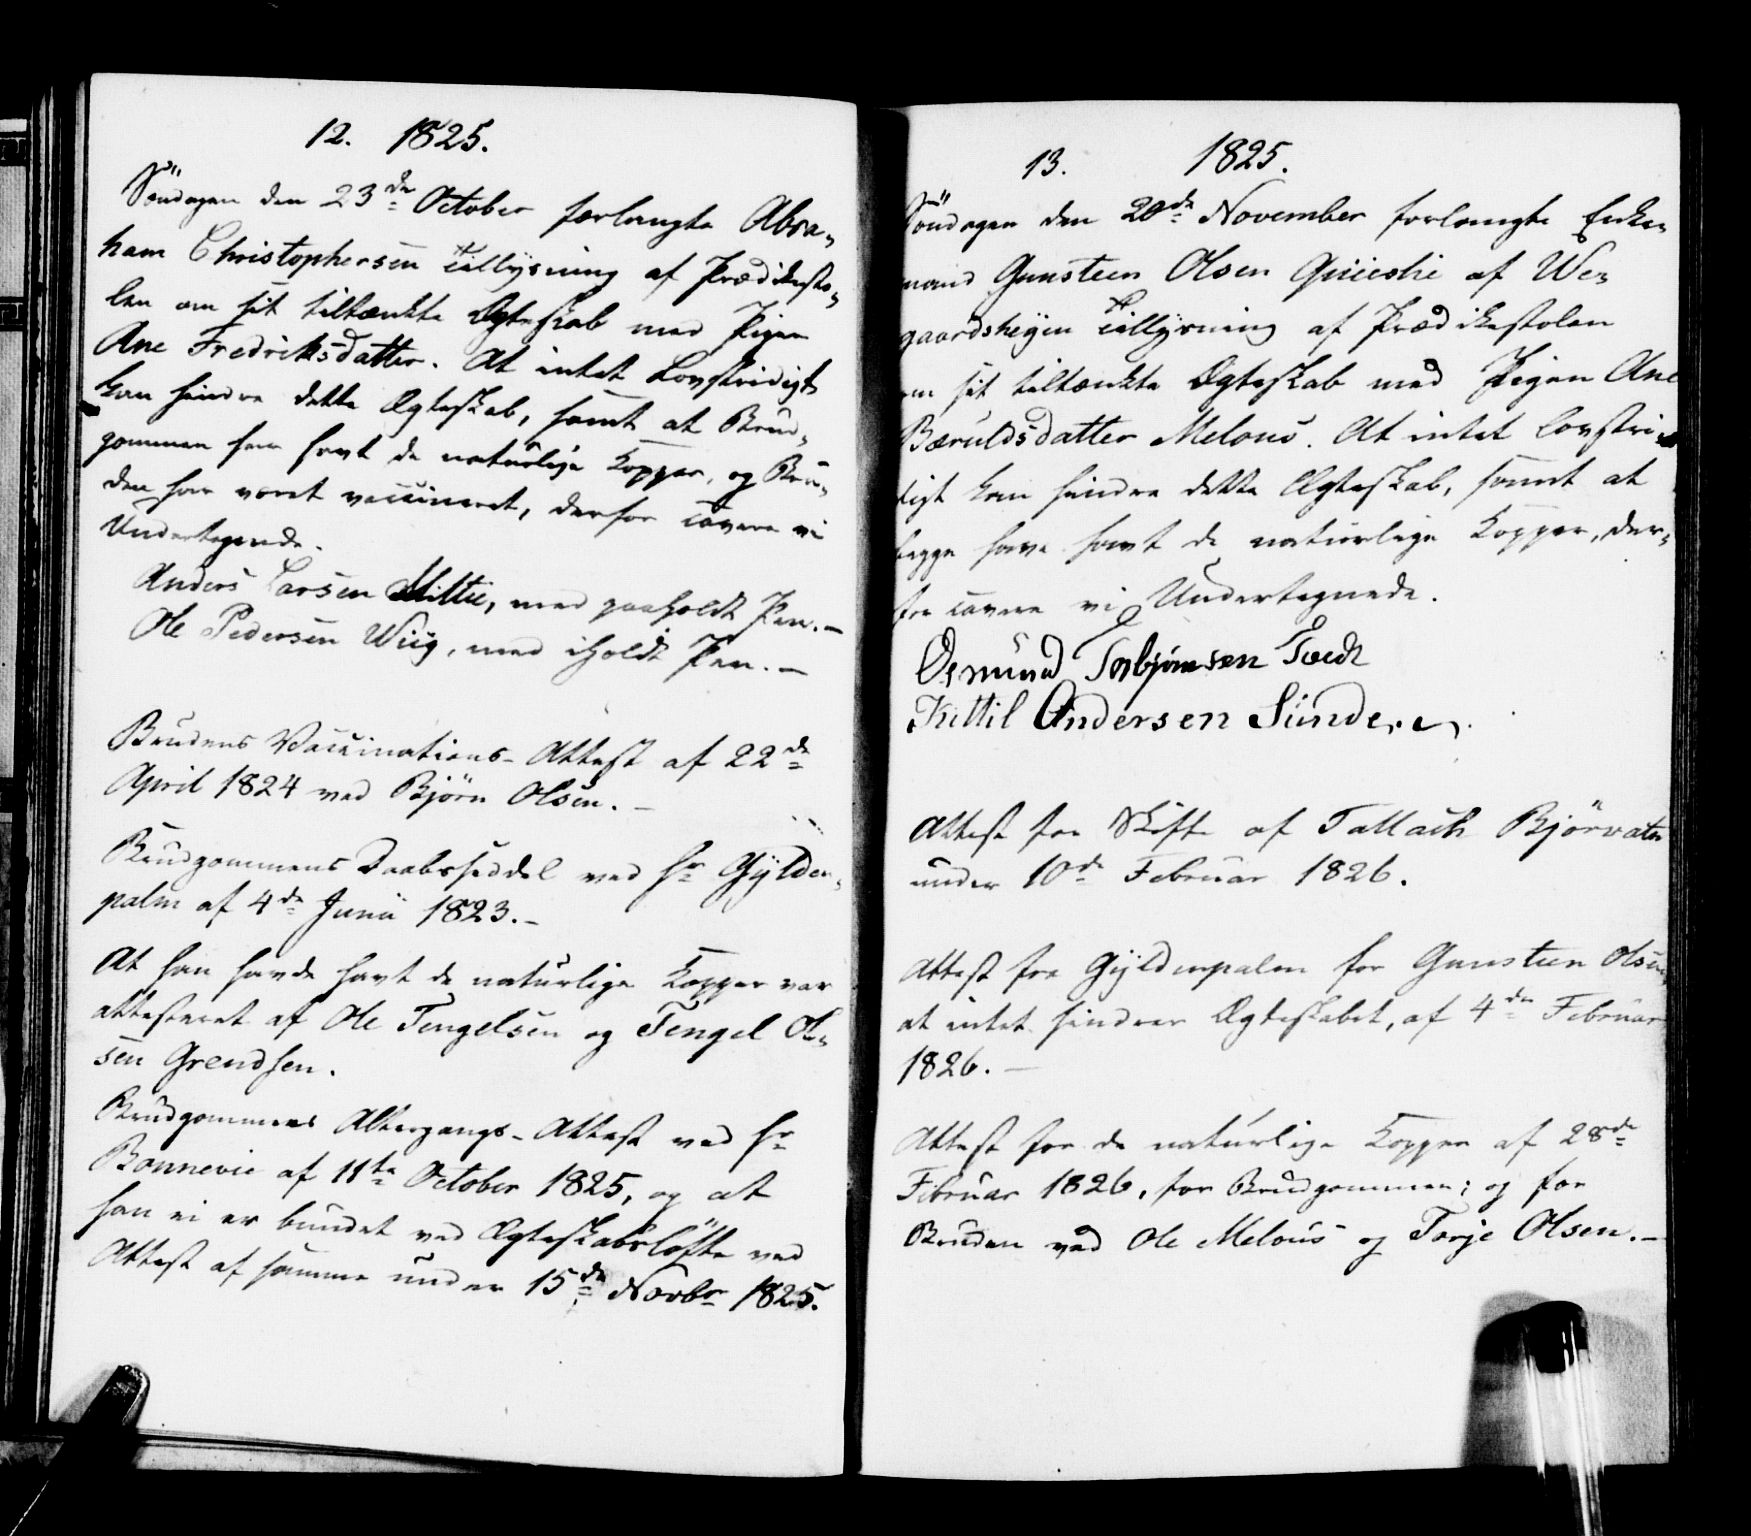 12. 1825.
Söndagen den 23de October forlangte Abra-
ham Christophersen Tillysning af Prædikesto-
len om sit tiltænkte Ægteskab med Pigen
Ane Fredriksdatter. At intet Lovstridigt
kan hindre dette Ægteskab, samt at Brud-
gommen har havt de naturlige Kopper, og Bru-
den har været vaccineret, derfor cavere vi
Undertegnede.
Anders Larsen Mittie, med paaholdt Pen. -
Ole Pedersen Wiig, med iholdt Pen. -
Brudens Vaccinations-Attest af 22de
April 1824 ved Björn Olsen. -
Brudgommens Daabsseddel ved Hr Gylden-
palm af 4de Junii 1823. -
At han havde havt de naturlige Kopper var
attesteret af Ole Tengelsen og Tengel Ol-
sen Grendsen.
Brudgommens Altergangs-Attest ved Hr
Bonnevie af 11te October 1825, og at
han ei er bundet ved Ægteskabslöfte ved
Attest af samme under 15de Novbr 1825.
13. 1825.
Söndagen den 20de November forlangte Enke-
mand Gunsteen Olsen af We-
gaardsheyen Tillysning af Prædikestolen
om sit tiltænkte Ægteskab med Pigen Ane
Bæruldsdatter Melous. At intet lovstri-
digt kan hindre dette Ægteskab, samt at
begge have havt de naturlige Kopper, der-
for cavere vi Undertegnede.
Osmund Torbjönsen Tvedt
Kittil Andersen
Attest fra Skifte af Tallach Björvatn
under 10de Februar 1826.
Attest fra Gyldenpalm for Gunsteen Olsen,
at intet hindrer Ægteskabet, af 4de Februar
1826. -
Attest for de naturlige Kopper af 28de
Februar 1826, for Brudgommen; og for
Bruden ved Ole Melous og Torje Olsen. -